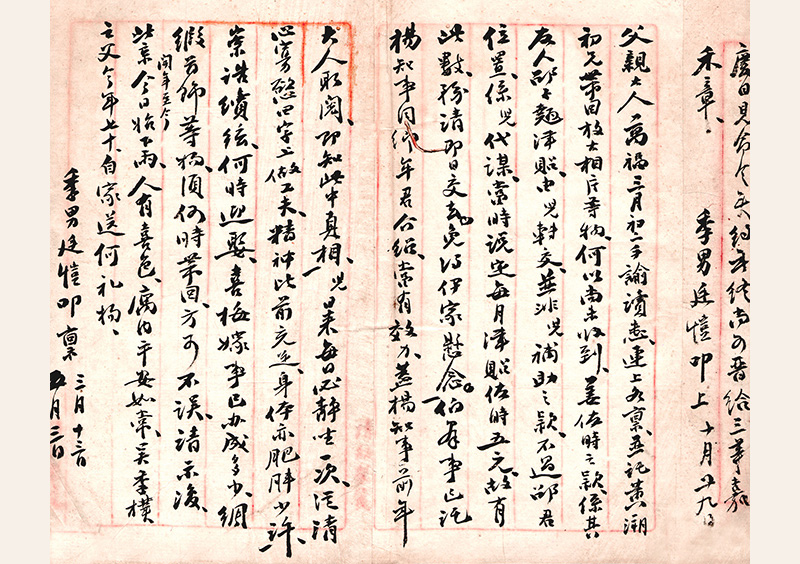 慶日見命令矣約年終尚可晉給三等嘉
禾章、
季男廷愷叩上 十月廿九日
父親大人萬福三月初一手諭讀悉連上各稟並託黄溯
初兄帶回放大相片等物何以尚未收到蓋佐時之款係其
友人邵君津貼由兒轉交並非兒補助之款不過邵君
位置係兒代謀當時説定每月津貼佐時五元故有
此數務請即日交去免得伊家懸念伯舅事已託
楊知事同年君介紹當有效力蓋楊知事前年
大人取閲即知此中真相兒日來每日必静坐一次從請
心寡慾四字上做工夫精神比前充足身体亦肥胖少許
崇誥續絃何時迎娶喜梅嫁事已办成多少綢
緞首飾等物須何時帶回方可不誤請示復
閏年至今
此京今日始下雨人有喜色寓内平安如常吴季樸
之父今年七十自家送何礼物、
季男廷愷叩稟
三月十三日
五月三日